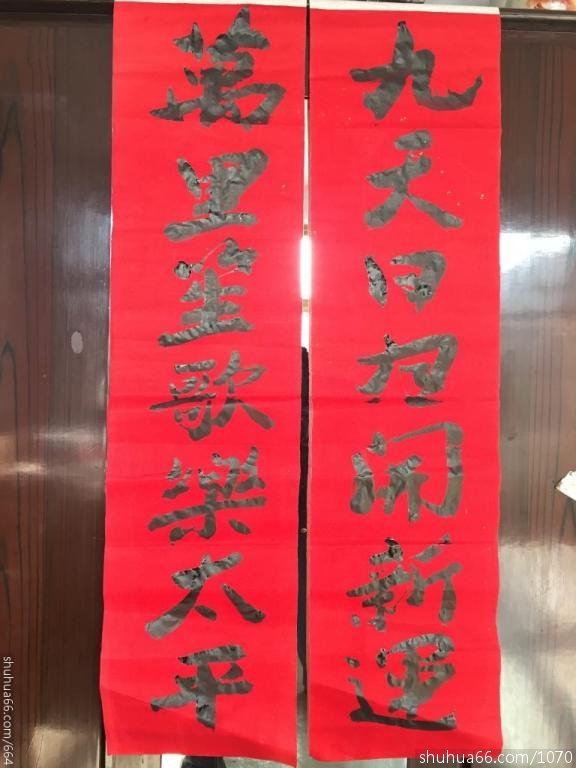 九天日月開新運
萬里笙歌樂太平
shuhua66.com/664
shuhua66.com/1070